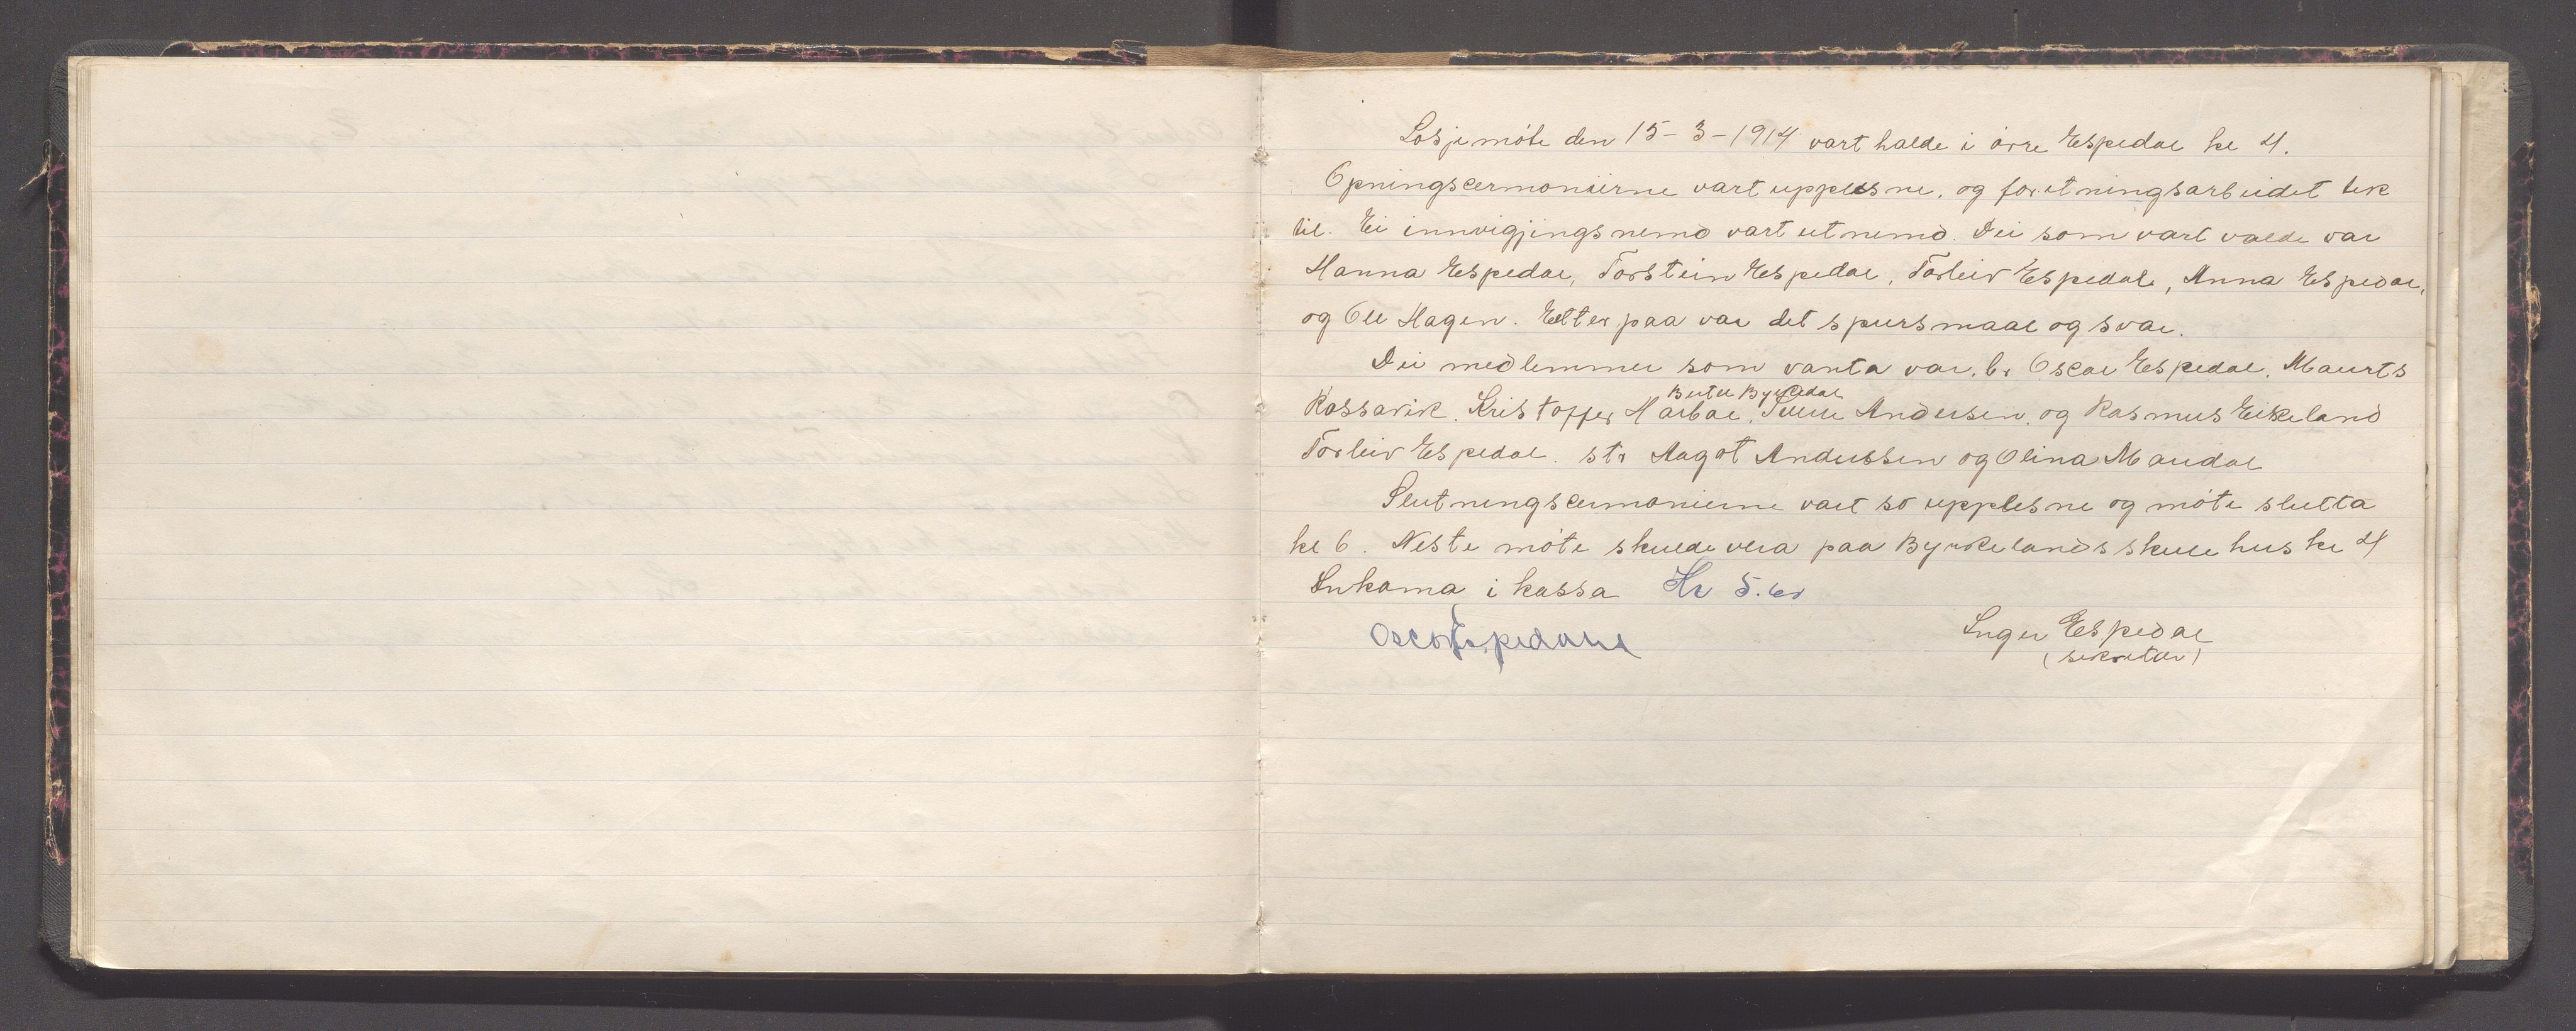 Losjemöte den 15-3-1914 vart halde i övre Espedal kl 4.
Opningscermoniirne vart upplesne, og foretningsarbeidet tek
til. Ei innvigjingsnemd vart utnemd. Dei som vart valde var
Hanna Espedal, Torstein Espedal, Torleiv Espedal, Anna Espedal,
og Ole Hagen. Etter paa var det spursmaal og svar.
Dei medlemmer som vanta var, br Oscar Espedal, Maurts
Bertel Byrkedal
Rossavik, Kristoffer Maabae, Sverre Andersen, og Rasmus Eikeland
Torleiv Espedal. str Aagot Anderssen og Olina Maudal
Slutningscermonierne vart so upplesne og möte slutta
kl 6. Neste möte skulde vera paa Byrkelands skulehus kl 4
Inkoma i kassa Kr 5.60
Oscar Espedal
Inger Espedal
(sekretær)